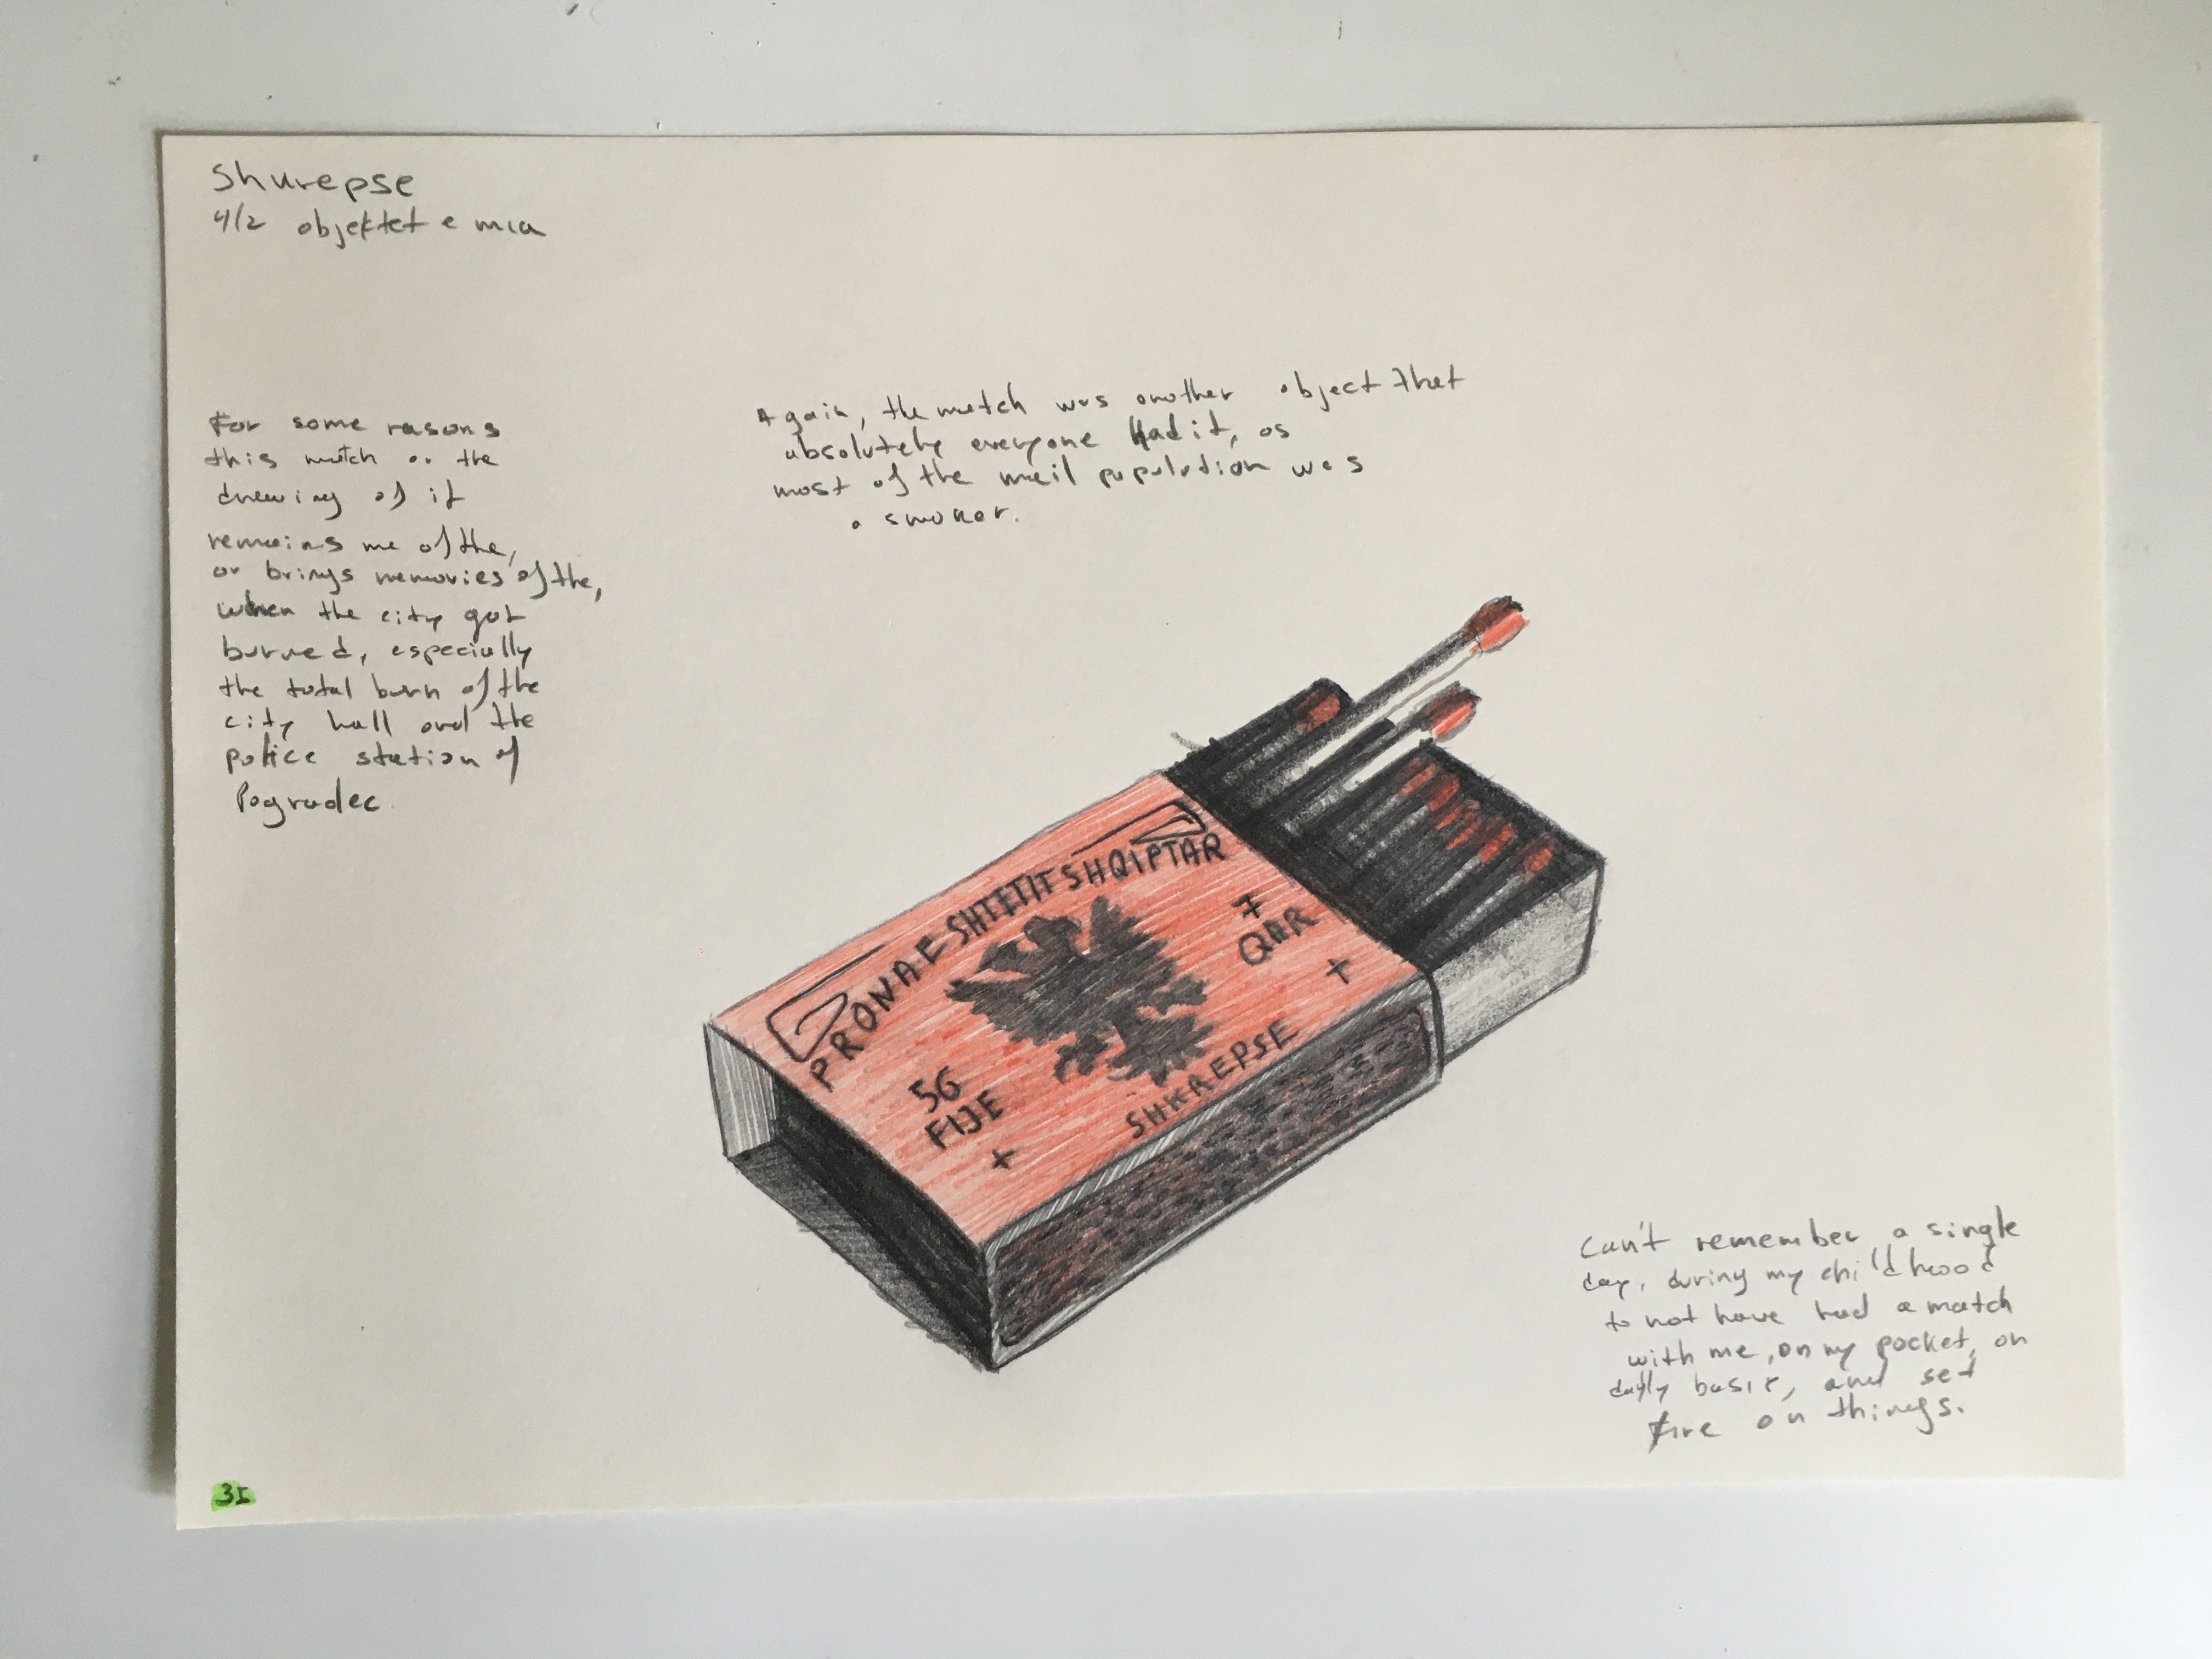 Shkrepse
4/2 objektet e mia
For some rasons
this match or the
drawing of it
remains me of the,
or brings memories of the,
when the city got
burned, especially
the total burn of the
city hall and the
police station of
Pogradec.
Again, the match was another object that
absolutely everyone Had it, as
most of the mail population was
a smoker.
PRONA E SHTETIT SHQIPTAR
7
QNR
+
56
FIJE
+
SHKREPSE
Can't remember a single
day, during my childhood
to not have had a match
with me, on my pocket, on
dayly basis, and set
fire on things.
35